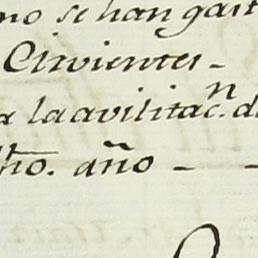 no se han gast
Cirvientes -
a la avilitac.n d
ho. año - -